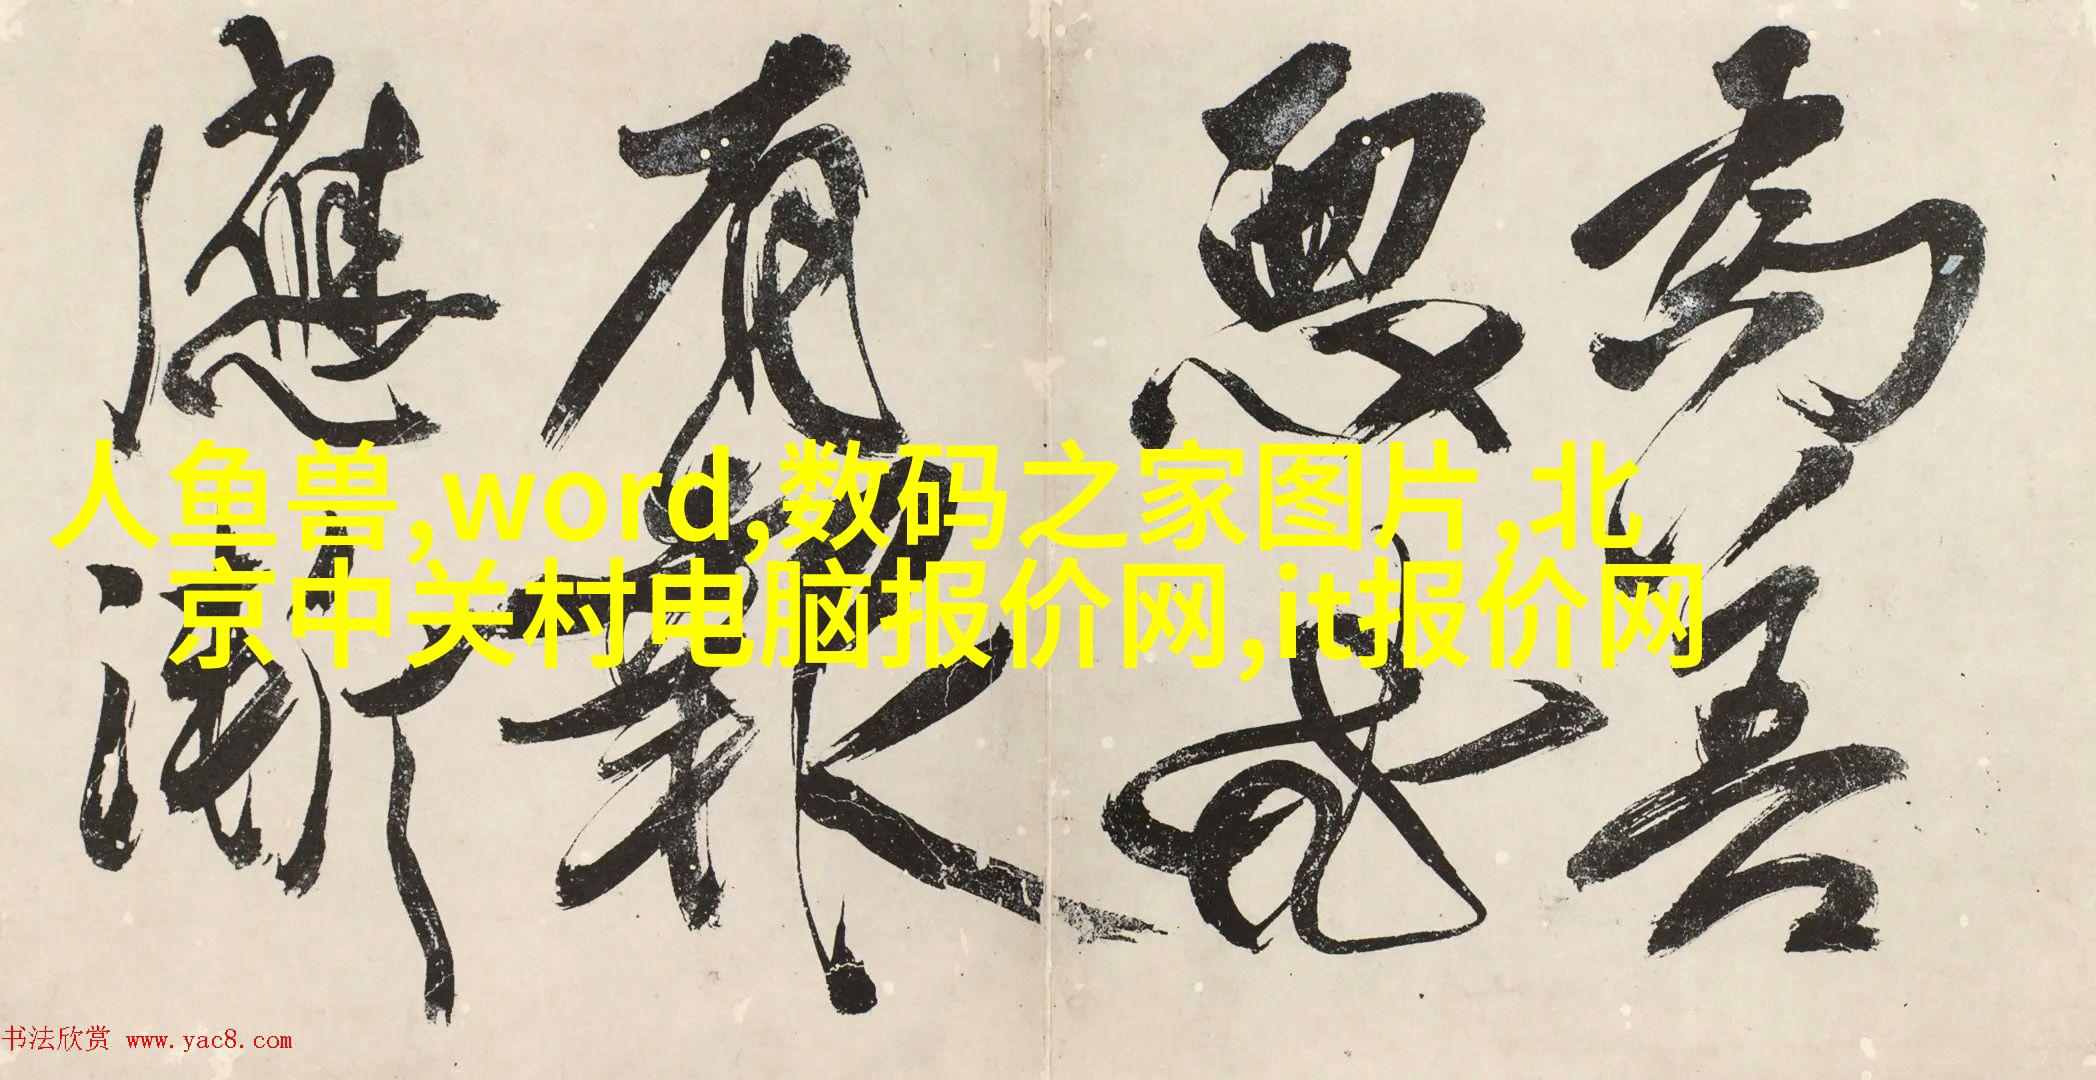 有報
應漸
人鱼兽,word,数码之家图片,北
京中关村电脑报价网,it报价网
书法欣赏 www.yac8.com